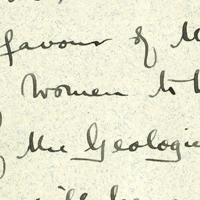 favour of
Women to
the Geologi